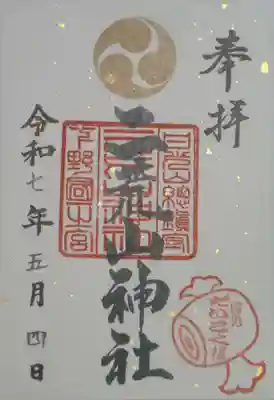 奉拝
二荒山神社
下野國一之宮
令和七年五月四日